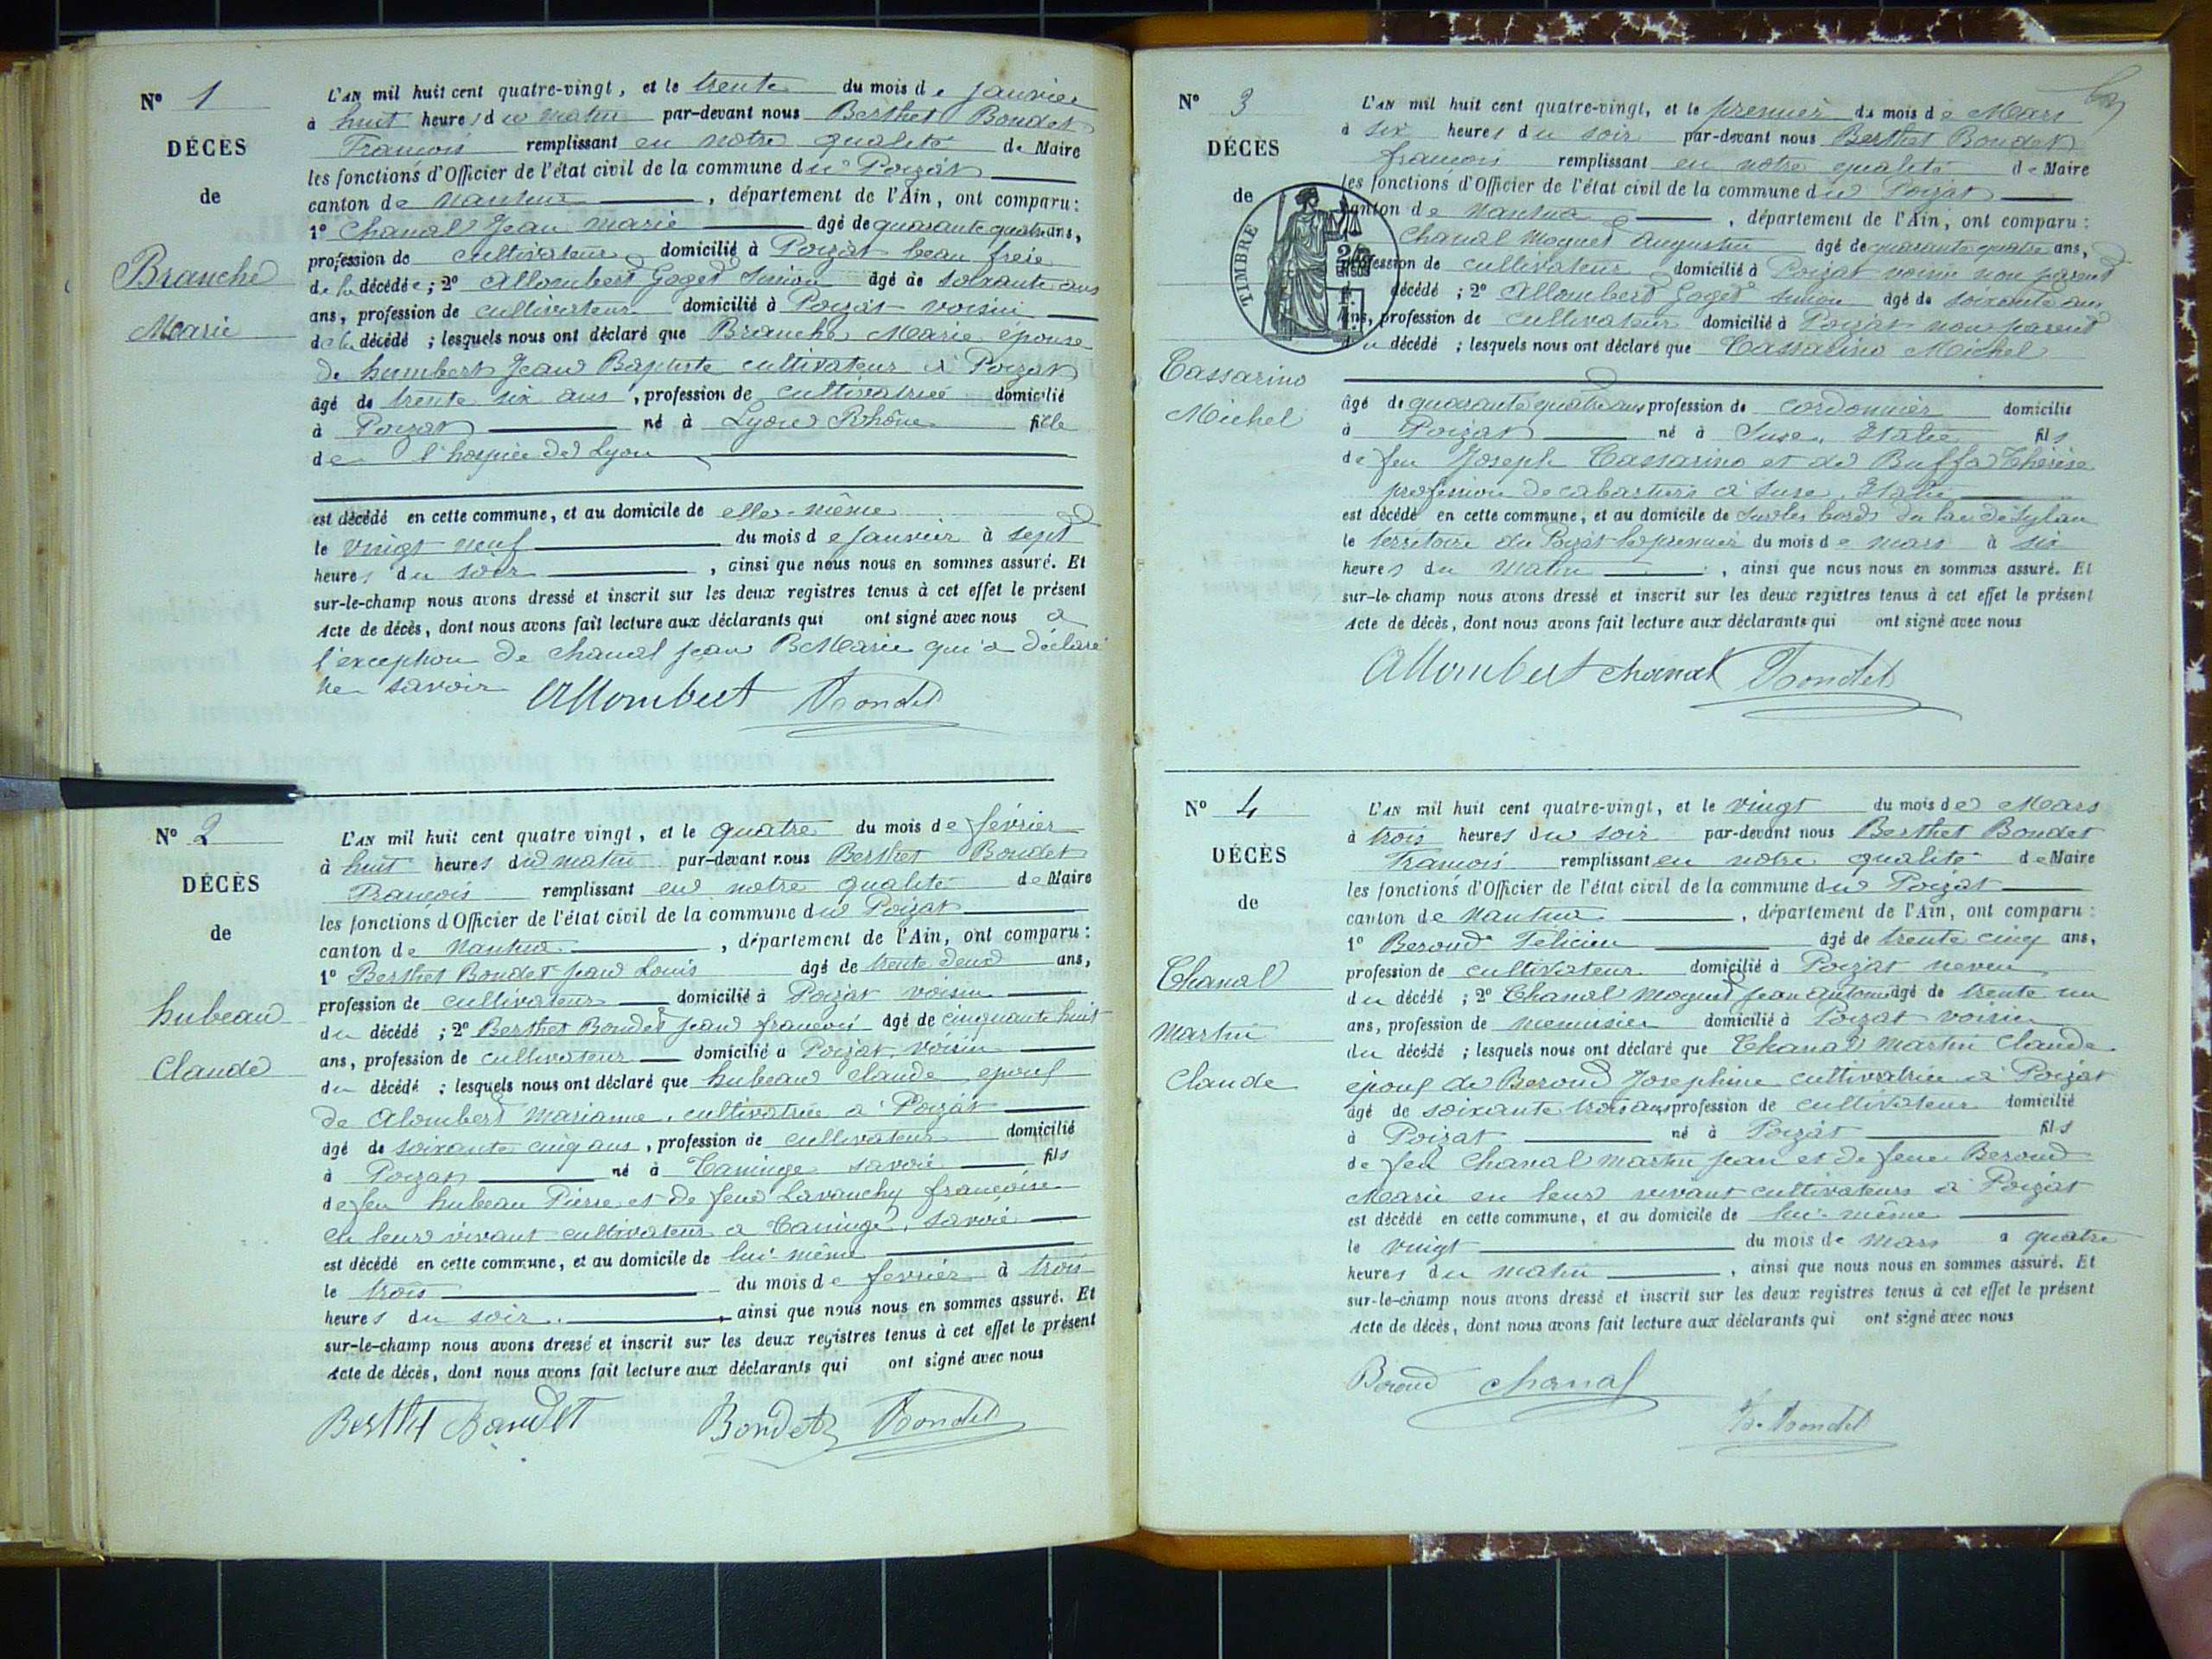 N° 1
DÉCÈS
de
Branche
Marie
L'AN mil huit cent quatre-vingt, et le trente du mois de janvier
à huit heures du matin par-devant nous Berthet Bondet
François remplissant en notre qualité de Maire
les fonctions d'Officier de l'état civil de la commune du Poizat
canton de Nantua, département de l'Ain, ont comparu:
1° Chanal Jean Marie âgé de quarante quatre ans,
profession de cultivateur domicilié à Poizat beau frère
de la décédée; 2° Allombert Goget Simon âgé de soixante ans
ans, profession de cultivateur domicilié à Poizat voisin
de la décédé; lesquels nous ont déclaré que Branche Marie épouse
de humbert Jean Baptiste cultivateur à Poizat
âgé de trente six ans, profession de cultivatrice domicilié
à Poizat né à Lyon Rhône fille
de l'hospice de Lyon
est décédé en cette commune, et au domicile de elle-même
le vingt neuf du mois de janvier à sept
heures du soir, ainsi que nous nous en sommes assuré. Et
sur-le-champ nous avons dressé et inscrit sur les deux registres tenus à cet effet le présent
Acte de décès, dont nous avons fait lecture aux déclarants qui ont signé avec nous a
l'exception de chanal jean Marie qui a déclaré
ne savoir Allombert Bondet
N° 2
DÉCÈS
de
hubeau
Claude
L'AN mil huit cent quatre vingt, et le quatre du mois de février
à huit heures du matin par-devant nous Berthet Bondet
François remplissant en notre qualité de Maire
les fonctions d'Officier de l'état civil de la commune du Poizat
canton de Nantua, département de l'Ain, ont comparu:
1° Berthet Bondet jean Louis âgé de trente deux ans,
profession de cultivateur domicilié à Poizat voisin
du décédé; 2° Berthet Bondet jean françois âgé de cinquante huit
ans, profession de cultivateur domicilié à Poizat, voisin
du décédé; lesquels nous ont déclaré que hubeau claude, epoux
de Alombert Marianne, cultivatrice à Poizat
âgé de soixante cinq ans, profession de cultivateur domicilié
à Poizat né à Taninge savoie fils
de feu hubeau Pierre et de feue Lavanchy françoise
en leur vivant cultivateur a Taninge, savoie
est décédé en cette commune, et au domicile de lui-même
le trois du mois de fevrier à trois
heures du soir, ainsi que nous nous en sommes assuré. Et
sur-le-champ nous avons dressé et inscrit sur les deux registres tenus à cet effet le présent
Acte de décès, dont nous avons fait lecture aux déclarants qui ont signé avec nous
Berthet Bondet Bondet Bondet
N° 3
DÉCÈS
de
TIMBRE
Cassarino
Michel
L'AN mil huit cent quatre-vingt, et le premier du mois de Mars
à six heures du soir par-devant nous Berthet Bondet
françois remplissant en notre qualité de Maire
les fonctions d'Officier de l'état civil de la commune du Poizat
canton de Nantua, département de l'Ain, ont comparu:
Chanal Moguet Augustin âgé de quarante quatre ans,
profession de cultivateur domicilié à Poizat voisin non parent
décédé; 2° Allombert Goget Simon âgé de soixante ans
ans, profession de cultivateur domicilié à Poizat non parent
du décédé; lesquels nous ont déclaré que Cassarino Michel
âgé de quarante quatre ans profession de cordonnier domicilié
à Poizat né à Suse, Italie fils
de feu Joseph Cassarino et de Buffa Thérèse
profession de cabartiers à Suse, Italie
est décédé en cette commune, et au domicile de sur les bords du lac de Sylan
le térritoire du Poizat le premier du mois de mars à six
heures du matin, ainsi que nous nous en sommes assuré. Et
sur-le-champ nous avons dressé et inscrit sur les deux registres tenus à cet effet le présent
Acte de décès, dont nous avons fait lecture aux déclarants qui ont signé avec nous
Allombert chanal Bondet
N° 4
DÉCÈS
de
Chanal
Martin
Claude
L'AN mil huit cent quatre-vingt, et le vingt du mois de Mars
à trois heures du soir par-devant nous Berthet Bondet
François remplissant en notre qualité de Maire
les fonctions d'Officier de l'état civil de la commune du Poizat
canton de Nantua, département de l'Ain, ont comparu:
1° Beroud Félicien âgé de trente cinq ans,
profession de cultivateur domicilié à Poizat neveu
du décédé; 2° Chanal Moguet jean antoine âgé de trente un
ans, profession de menuisier domicilié à Poizat voisin
du décédé; lesquels nous ont déclaré que Chanal Martin Claude
époux de Beroud Josephine cultivatrice à Poizat
âgé de soixante trois ans profession de cultivateur domicilié
à Poizat né à Poizat fils
de feu Chanal Martin jean et de feue Beroud
Marie en leur vivant cultivateurs à Poizat
est décédé en cette commune, et au domicile de lui-même
le vingt du mois de mars a quatre
heures du matin, ainsi que nous nous en sommes assuré. Et
sur-le-champ nous avons dressé et inscrit sur les deux registres tenus à cet effet le présent
Acte de décès, dont nous avons fait lecture aux déclarants qui ont signé avec nous
Beroud chanal
Bondet